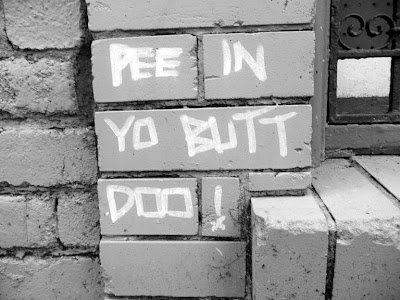 PEE IN
YO BUTT
DOO!